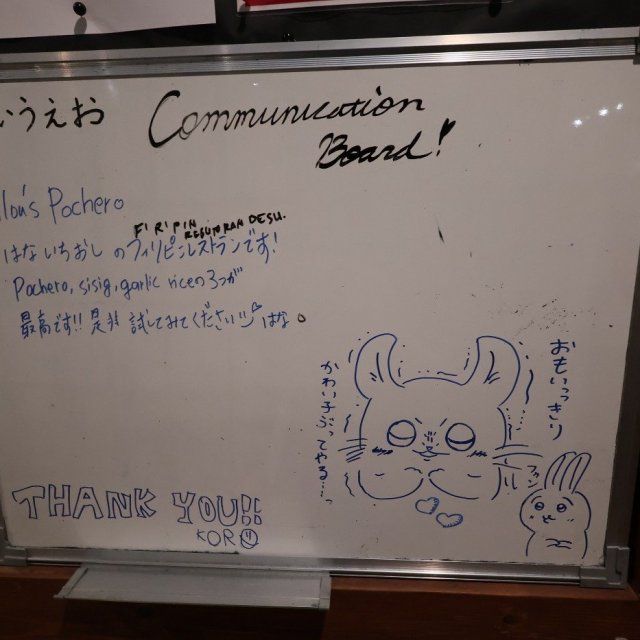 いうえお
Communication
Board!
lon's Pochero
FIRIPIN
RESUTORAN DESU.
はないちおし のフィリピンレストランです!
Pochero, sisig, garlic riceの3つが
最高です!! 是非 試してみてください はな。
おもいっきり
かわい子ぶってやる…っ
THANK YOU!!
KORO